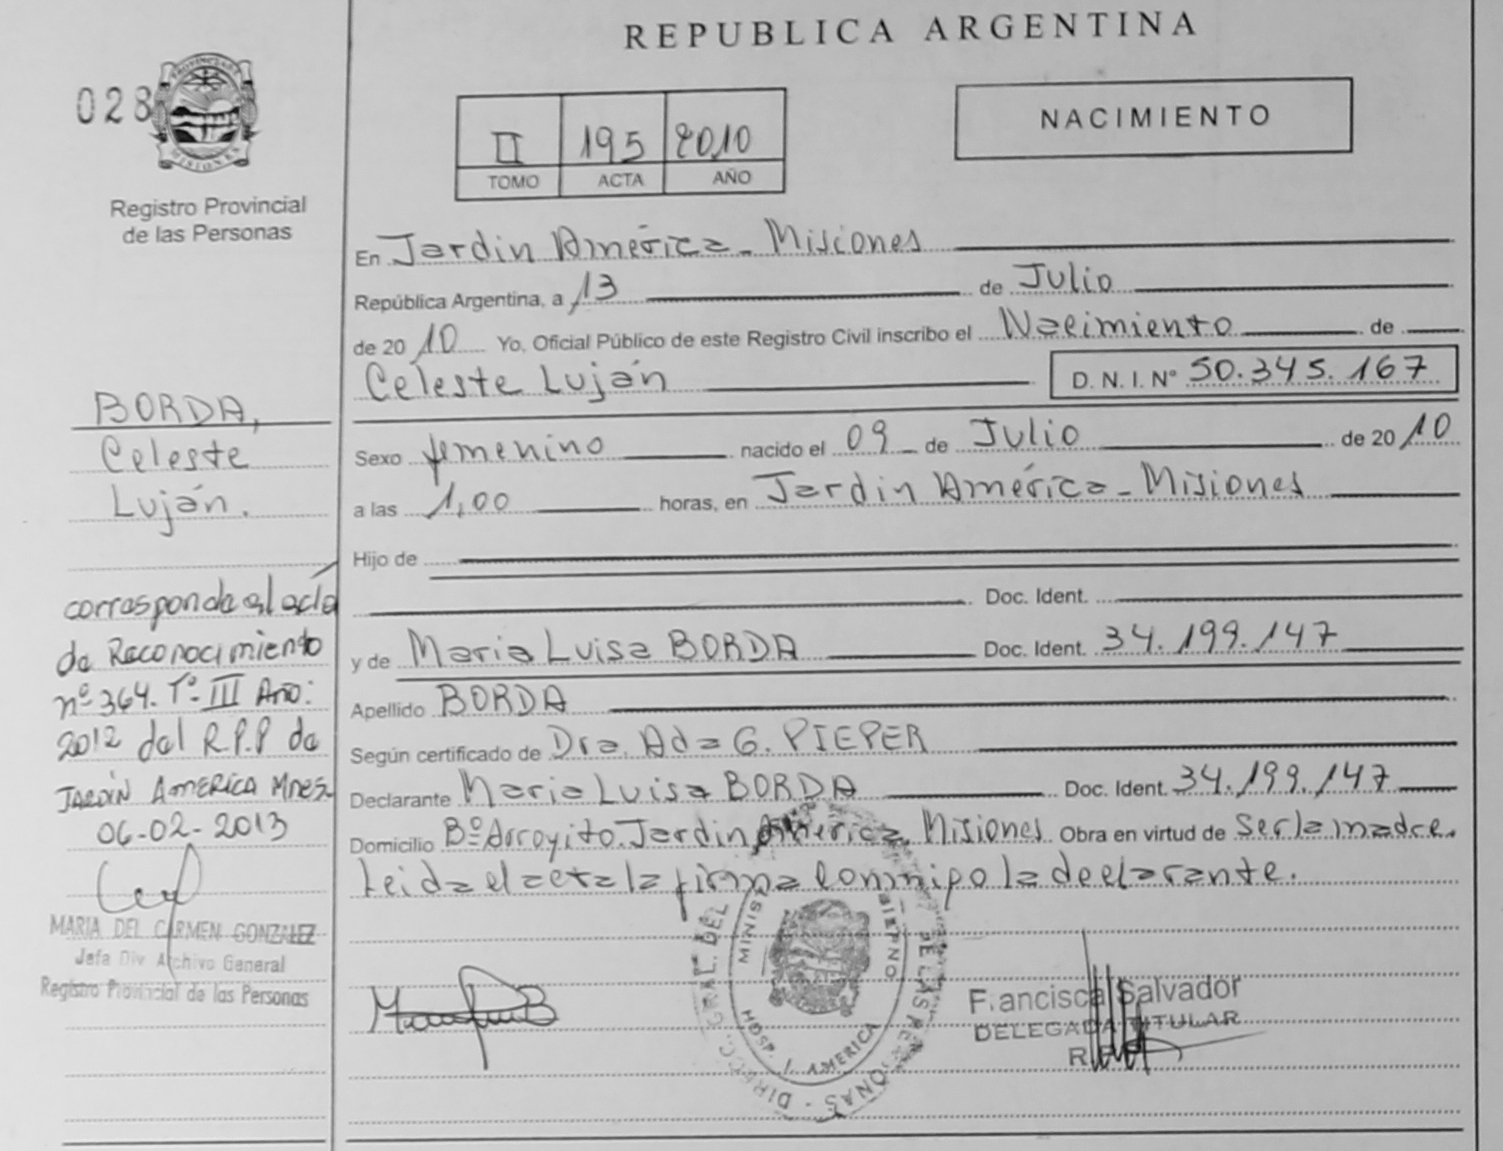 REPUBLICA ARGENTINA
028
PROVINCIA DE
MISIONES
Registro Provincial
de las Personas
II 195 2010
TOMO ACTA AÑO
NACIMIENTO
En Jardin América - Misiones
República Argentina, a 13 de Julio
de 20 10 Yo, Oficial Público de este Registro Civil inscribo el Nacimiento de
Celeste Luján D. N. I. Nº 50.345.167
Sexo femenino nacido el 09 de Julio de 20 10
a las 1,00 horas, en Jardin América - Misiones
Hijo de
Doc. Ident.
y de Maria Luisa BORDA Doc. Ident. 34.199.147
Apellido BORDA
Según certificado de Dra. Ada G. PIEPER
Declarante Maria Luisa BORDA Doc. Ident. 34.199.147
Domicilio Bº Arroyito. Jardin América, Misiones Obra en virtud de ser la madre.
Leida el acta la firma conmigo la declarante.
BORDA,
Celeste
Luján.
corresponde al acta
de Reconocimiento
nº 364. Tº III Año:
2012 del R.P.P de
JARDIN AMERICA Mnes.
06-02-2013
MARIA DEL CARMEN GONZALEZ
Jefa Div Archivo General
Registro Provincial de las Personas
DIRECC. GRAL. DEL DE LAS PERSONAS
MINIS
HOSP. J. AMERICA
Francisca Salvador
DELEGADA TITULAR